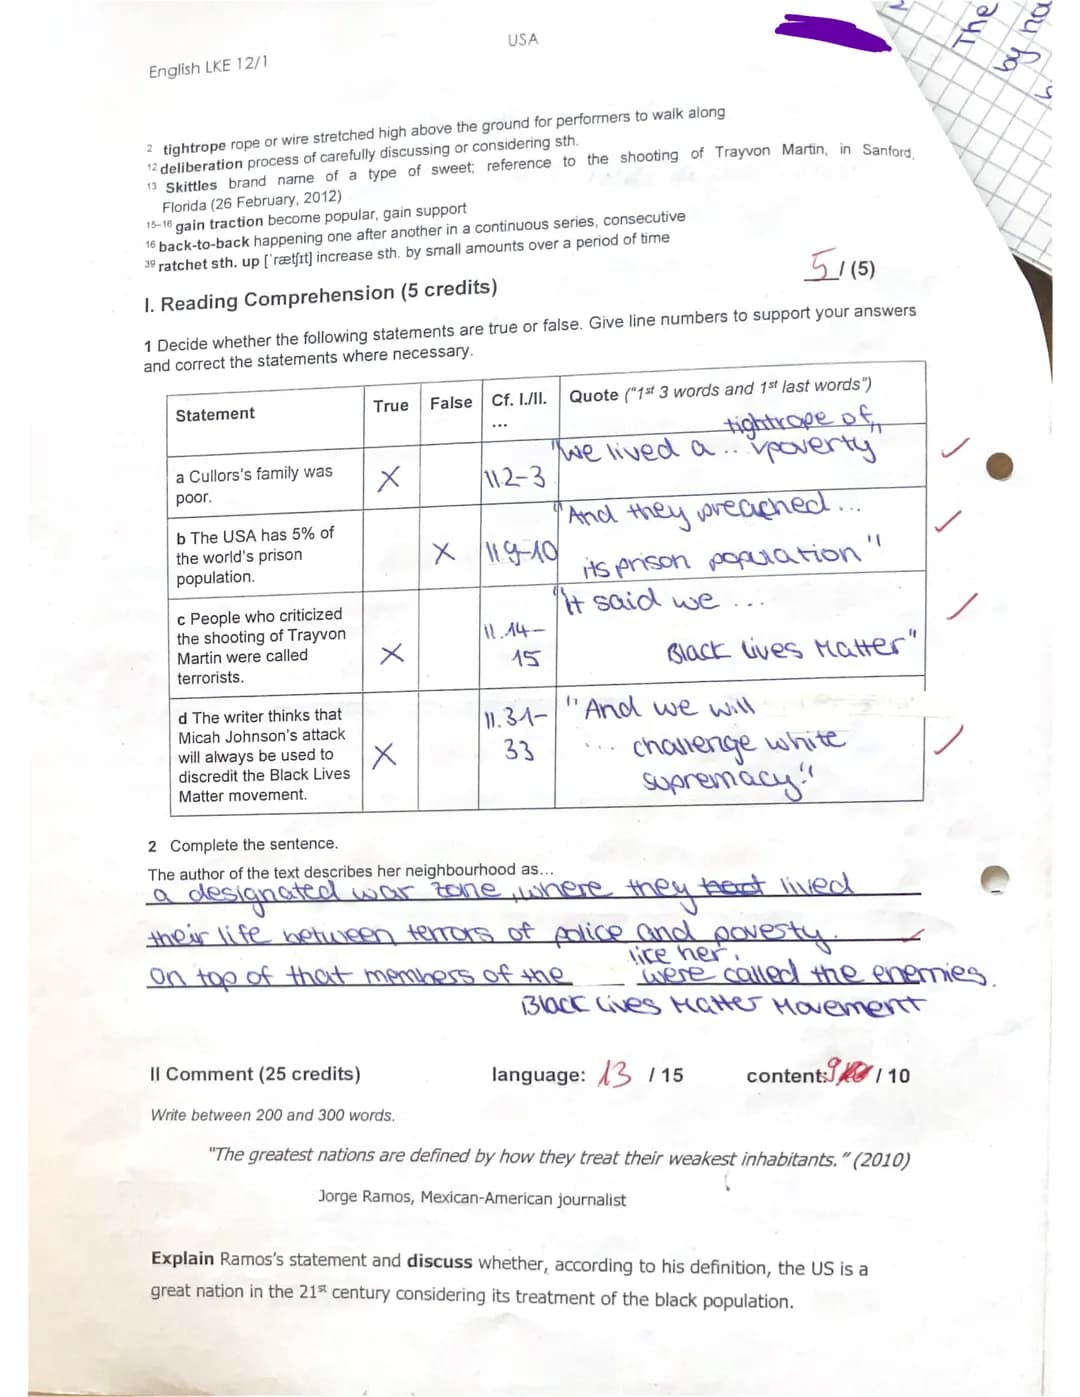 USA
English LKE 12/1
The
by ha
2 tightrope rope or wire stretched high above the ground for performers to walk along
12 deliberation process of carefully discussing or considering sth.
13 Skittles brand name of a type of sweet; reference to the shooting of Trayvon Martin, in Sanford,
Florida (26 February, 2012)
15–16 gain traction become popular, gain support
16 back-to-back happening one after another in a continuous series, consecutive
39 ratchet sth. up [ˈrætʃɪt] increase sth. by small amounts over a period of time
5 / (5)
I. Reading Comprehension (5 credits)
1 Decide whether the following statements are true or false. Give line numbers to support your answers
and correct the statements where necessary.
Statement True False Cf. l./ll. ... Quote ("1st 3 words and 1st last words")
tightrope of
a Cullors's family was
poor.
X
ll.2-3
"we lived a ... poverty"
b The USA has 5% of
the world's prison
population.
X
ll.9-10
"And they preached...
its prison population"
c People who criticized
the shooting of Trayvon
Martin were called
terrorists.
X
ll.14-
15
"It said we ...
Black Lives Matter"
d The writer thinks that
Micah Johnson's attack
will always be used to
discredit the Black Lives
Matter movement.
X
ll.31-
33
"And we will
... challenge white
supremacy."
2 Complete the sentence.
The author of the text describes her neighbourhood as...
a designated war zone, where they lived
their life between terrors of police and povesty.
lice her.
On top of that members of the were called the enemies.
Black Lives Matter Movement
II Comment (25 credits) language: 13 / 15 content: 9 / 10
Write between 200 and 300 words.
"The greatest nations are defined by how they treat their weakest inhabitants." (2010)
Jorge Ramos, Mexican-American journalist
Explain Ramos's statement and discuss whether, according to his definition, the US is a
great nation in the 21st century considering its treatment of the black population.